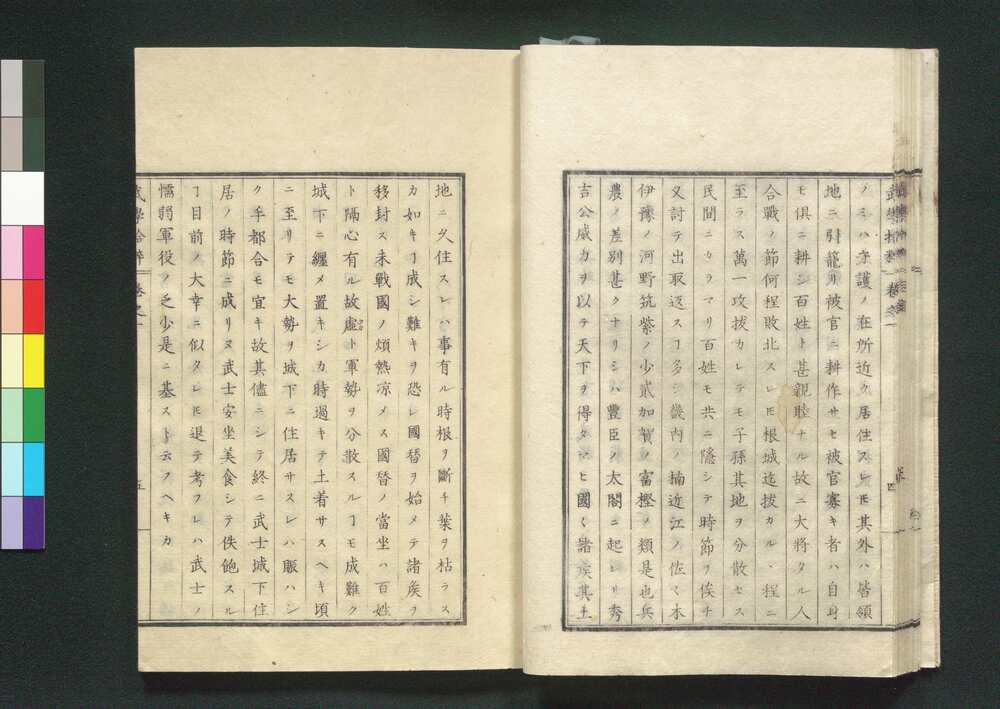 ノミハ守護ノ在所近ク居住スレヒモ其外ハ皆領
地ニ引籠リ被官ニ耕作サセ被官寡キ者ハ自身
モ俱ニ耕シ百姓ト甚親睦ナル故ニ大將タル人
合戰ノ節何程敗北スレヒモ根城迄拔カルヽ程ニ
至ラス萬一攻拔カレテモ子孫其地ヲ分散セス
民間ニカラマリ百姓モ共ニ隱シテ時節ヲ俟チ
又討テ出取返スヿ多シ畿内ノ楠近江ノ佐々木
伊豫ノ河野筑紫ノ少貳加賀ノ富樫ノ類是也兵
農ノ差別甚クナリシハ豊臣ノ太閤ニ起レリ秀
吉公威力ヲ以テ天下ヲ得タマヒ國々諸矦其土
地ニ久住スレハ事有ル時根ヲ斷チ葉ヲ枯ラス
カ如キヿ成シ難キヲ恐レ國替ヲ始メテ諸矦ヲ
移封ス未戰國ノ煩熱凉メス國替ノ當坐ハ百姓
ト隔心有ル故虚ト軍勢ヲ分散スルヿモ成難ク
城下ニ纏メ置キシカ時過キテ土着サスヘキ頃
ニ至リテモ大勢ヲ城下ニ住居サスレハ賑ハシ
ク手都合モ宜キ故其儘ニシテ終ニ武士城下住
居ノ時節ニ成リヌ武士安坐美食シテ佚飽スル
ヿ目前ノ大幸ニ似タレヒモ退テ考フレハ武士ノ
懦弱軍役ノ乏少是ニ基ストモ云フヘキカ
五